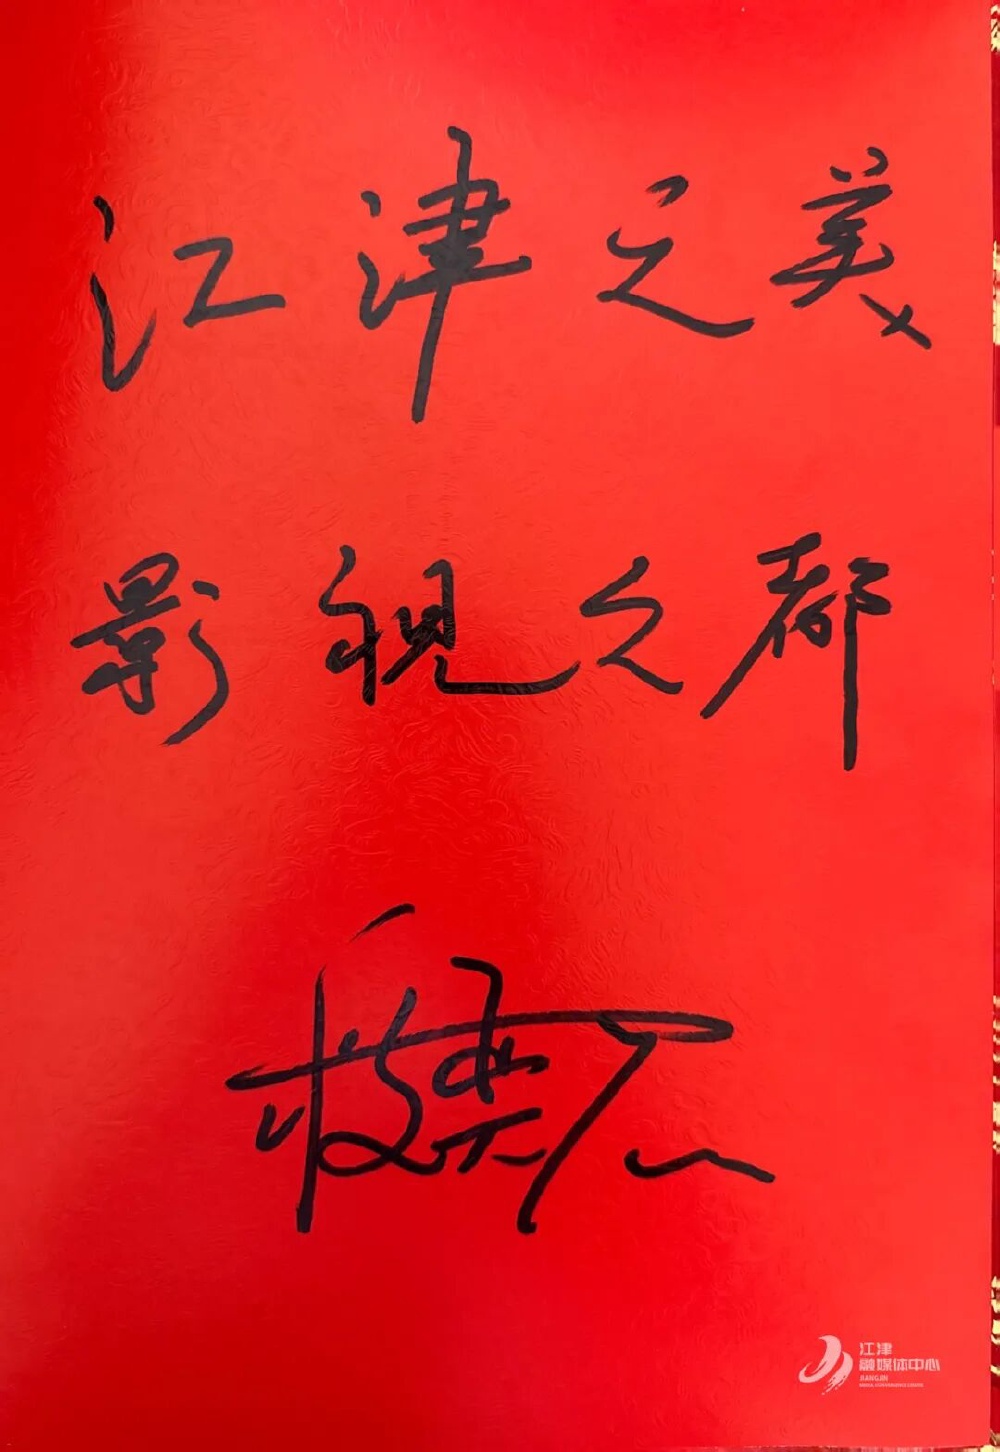 江津之美
影视之都
江津
融媒体中心
JIANGJIN